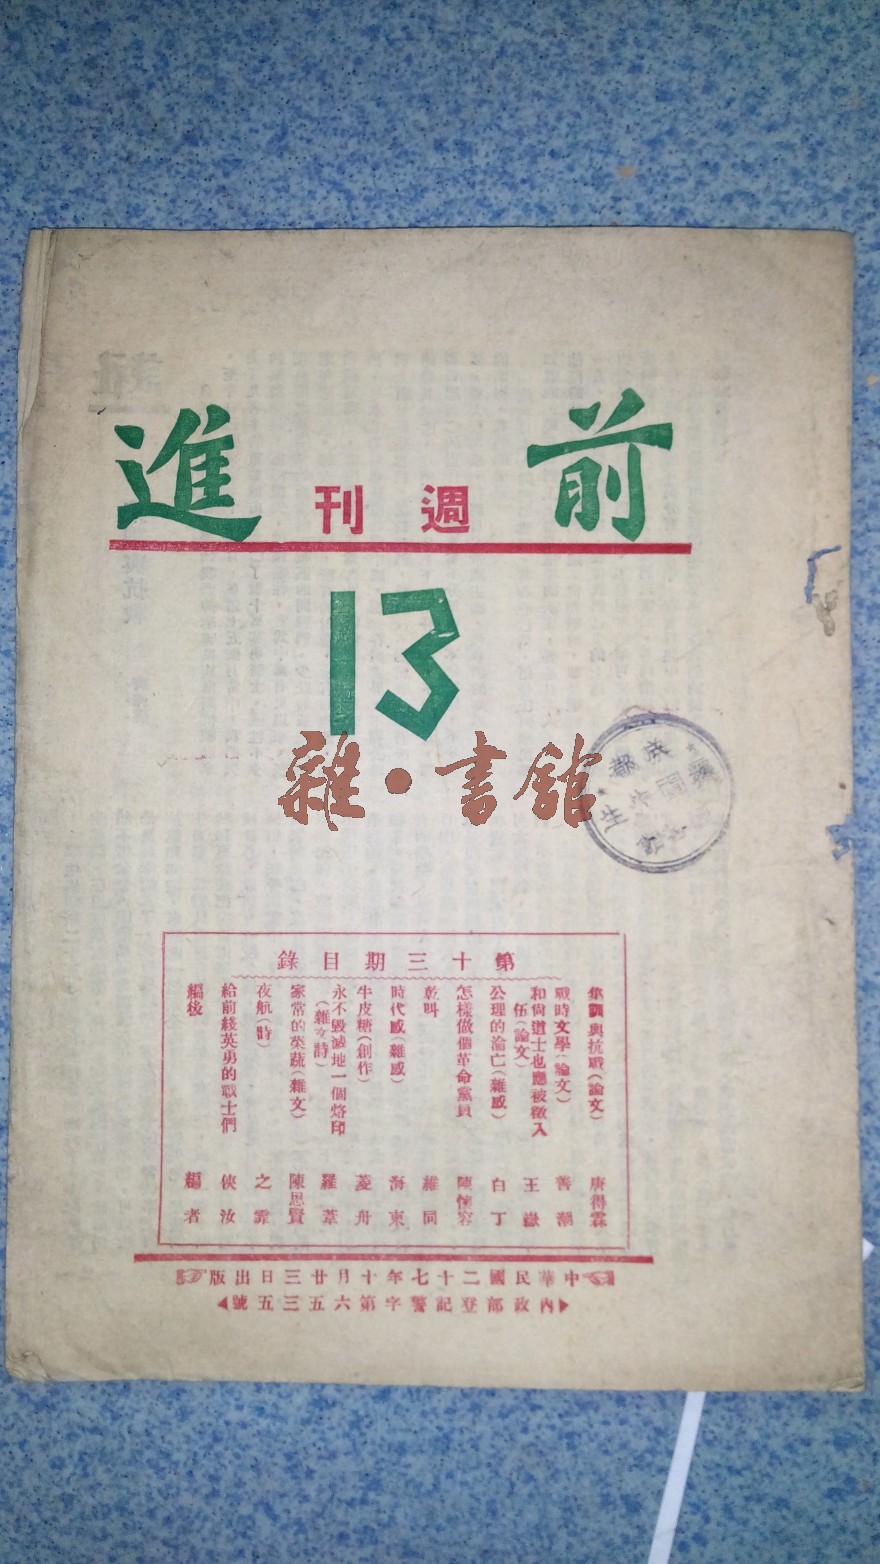 前進
週刊
13
雜·書館
成都
第十三期目錄
集訓與抗戰(論文) 唐得霖
戰時文學(論文) 善潮
和尙道士也應被徵入伍(論文) 王嶽
公理的淪亡(雜感) 白丁
怎樣做個革命黨員 陳懷容
乾叫 維同
時代感(雜感) 海東
牛皮糖(創作) 菱舟
永不毀滅地一個烙印(雜文詩) 羅葦
家常的菜蔬(雜文) 陳思賢
夜航(詩) 之霏
給前綫英勇的戰士們 俠汝
編後 編者
中華民國二十七年十月廿三日出版
內政部登記警字第六五三五號